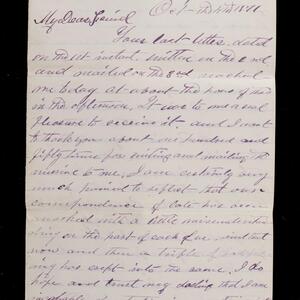 Oct - the 4th 1871.
My Dear Friend
Your last letter, dated
on the 1st instant, written on the 2nd,
and mailed on the 3rd reached
me today at about the hour of two
in the afternoon. It was to me a real
pleasure to receive it. and I want
to thank you about one hundred and
fifty times for writing and mailing the
missive to me. I am certainly very
much pained to reflect that our
correspondence of late has been
marked with a little misunderstan
ding on the part of each of us and that
now and then a trifle of
has crept into the same. I do
hope and trust my darling that I am